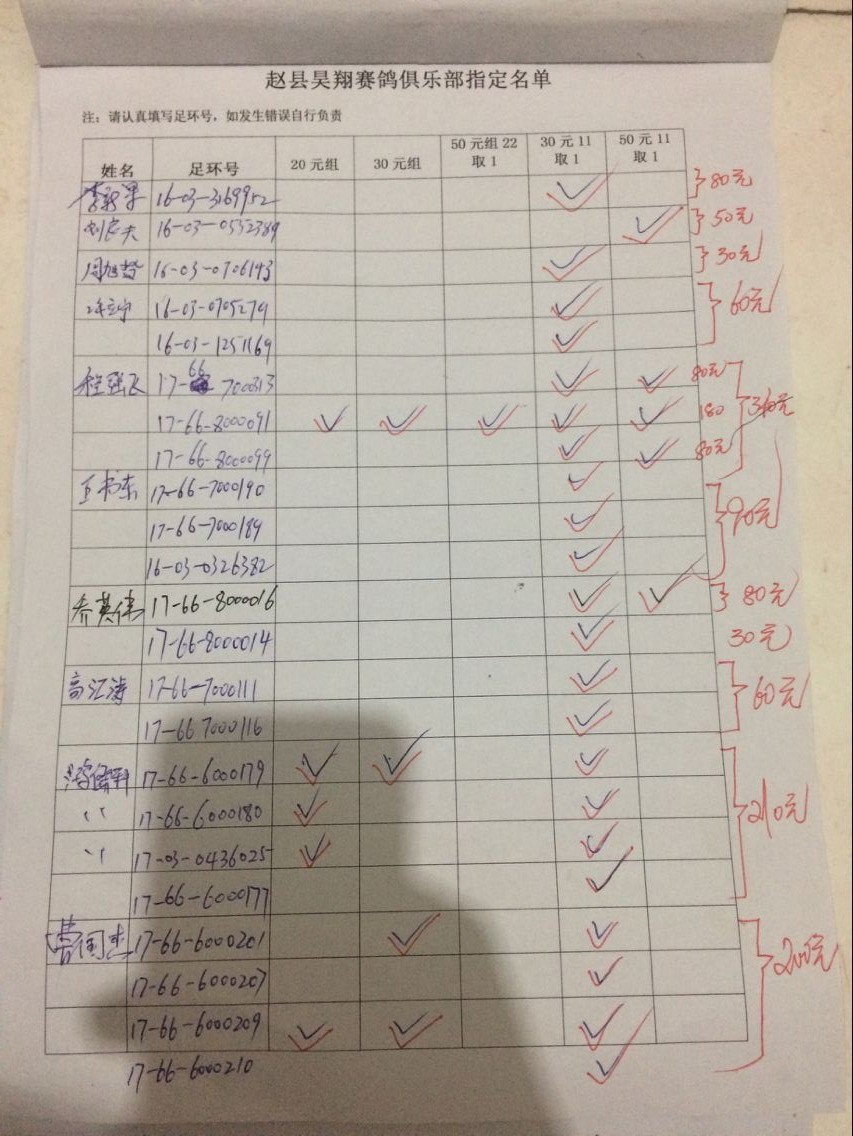 赵县昊翔赛鸽俱乐部指定名单
注：请认真填写足环号，如发生错误自行负责
姓名 足环号 20元组 30元组 50元组22取1 30元11取1 50元11取1
16-03-3169952 ✓ 80元
刘 夫 16-03-0532389 ✓ 50元
周旭 16-03-0706193 ✓ 30元
16-03-0705279 ✓ 60元
16-03-1251169 ✓
程强飞 17-66 700313 ✓ ✓ 80元
17-66-8000091 ✓ ✓ ✓ ✓ ✓ 180 340元
17-66-8000099 ✓ ✓ 80元
王书东 17-66-7000190 ✓
17-66-7000189 ✓ 90元
16-03-0326382 ✓
乔英伟 17-66-8000016 ✓ ✓ 80元
17-66-8000014 ✓ 30元
高江涛 17-66-7000111 ✓ 60元
17-66 7000116 ✓
17-66-6000179 ✓ ✓ ✓
〃 17-66-6000180 ✓ ✓ 210元
〃 17-03-0436025 ✓ ✓
17-66-6000177 ✓
曹国杰 17-66-6000201 ✓ ✓
17-66-6000207 ✓ 200元
17-66-6000209 ✓ ✓ ✓
17-66-6000210 ✓